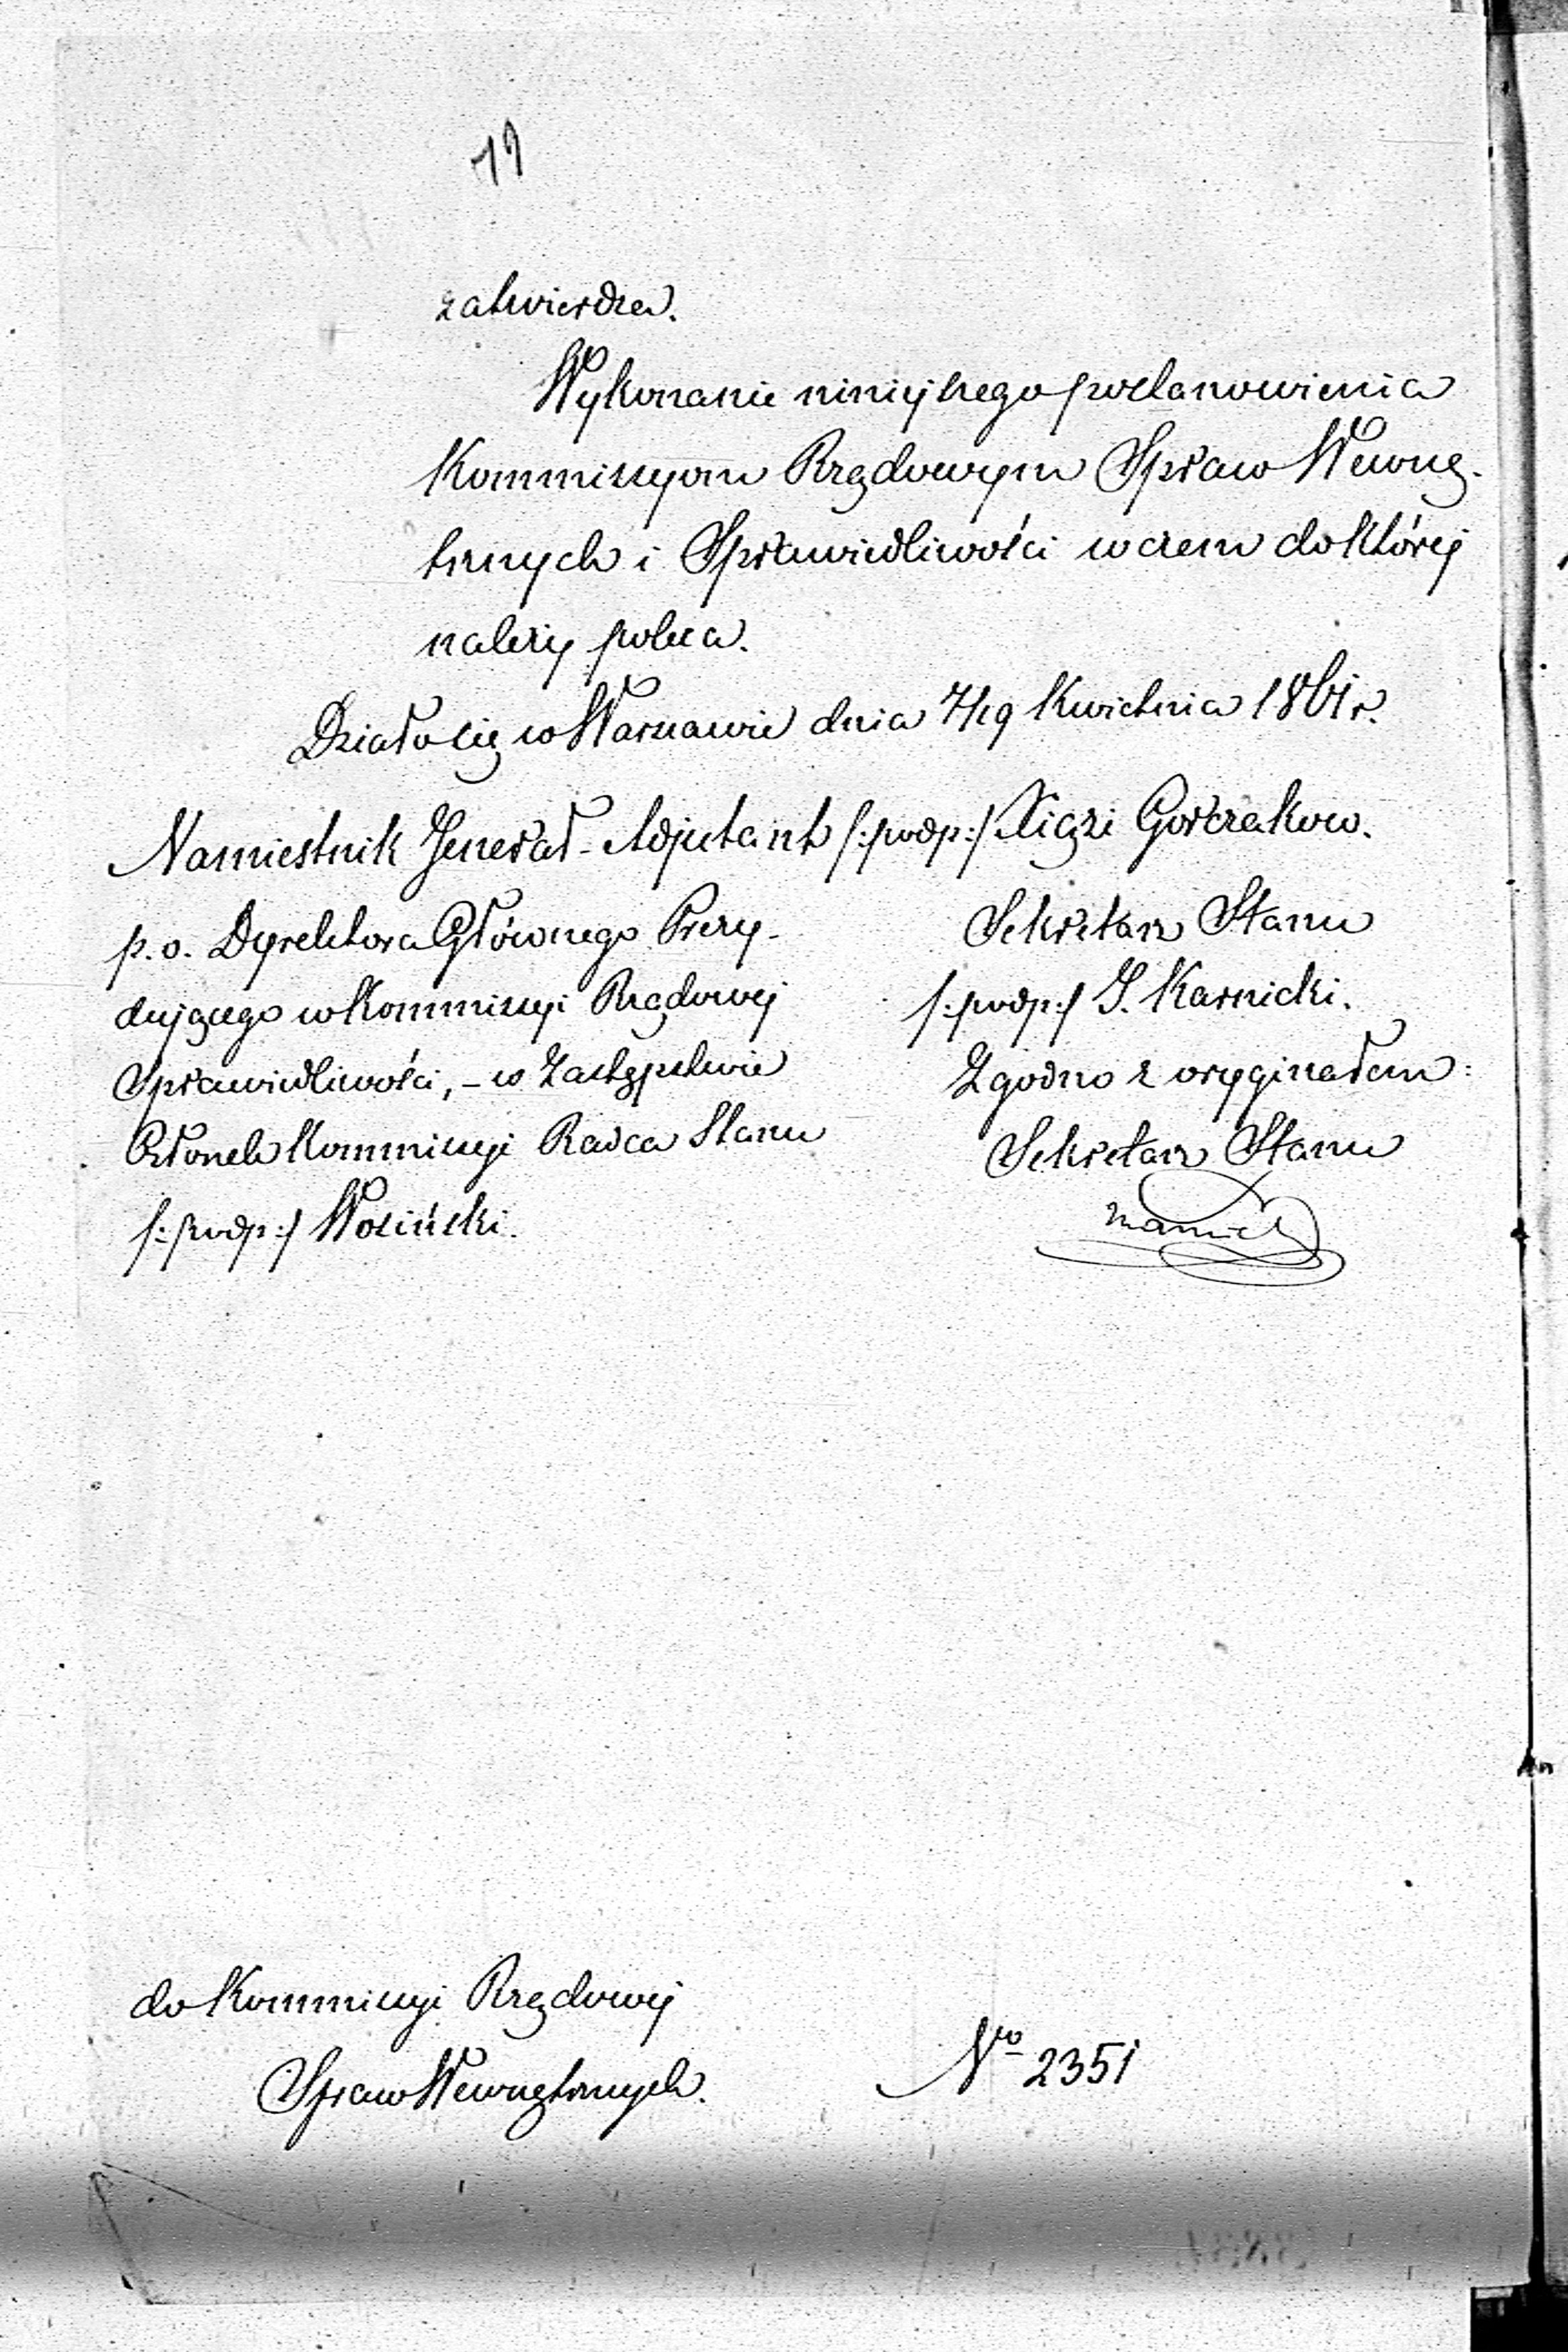 79
zatwierdza.
Wykonanie niniejszego postanowienia
Kommissyom Rządowym Spraw Wewnę-
trznych i Sprawiedliwości w czem do której
należy poleca.
Działo się w Warszawie dnia 7/19 Kwietnia 1861 r.
Namiestnik Jenerał-Adjutant /:podp:/ Xiąże Gorczakow.
p.o. Dyrektora Głównego Prezy-
dującego w Kommissyi Rządowej
Sprawiedliwości, - w Zastępstwie
Członek Kommissyi Radca Stanu
/:podp:/ Wosiński.
Sekretarz Stanu
/:podp:/ J. Karnicki.
Zgodno z oryginałem:
Sekretarz Stanu
do Kommissyi Rządowej
Spraw Wewnętrznych.
No 2351